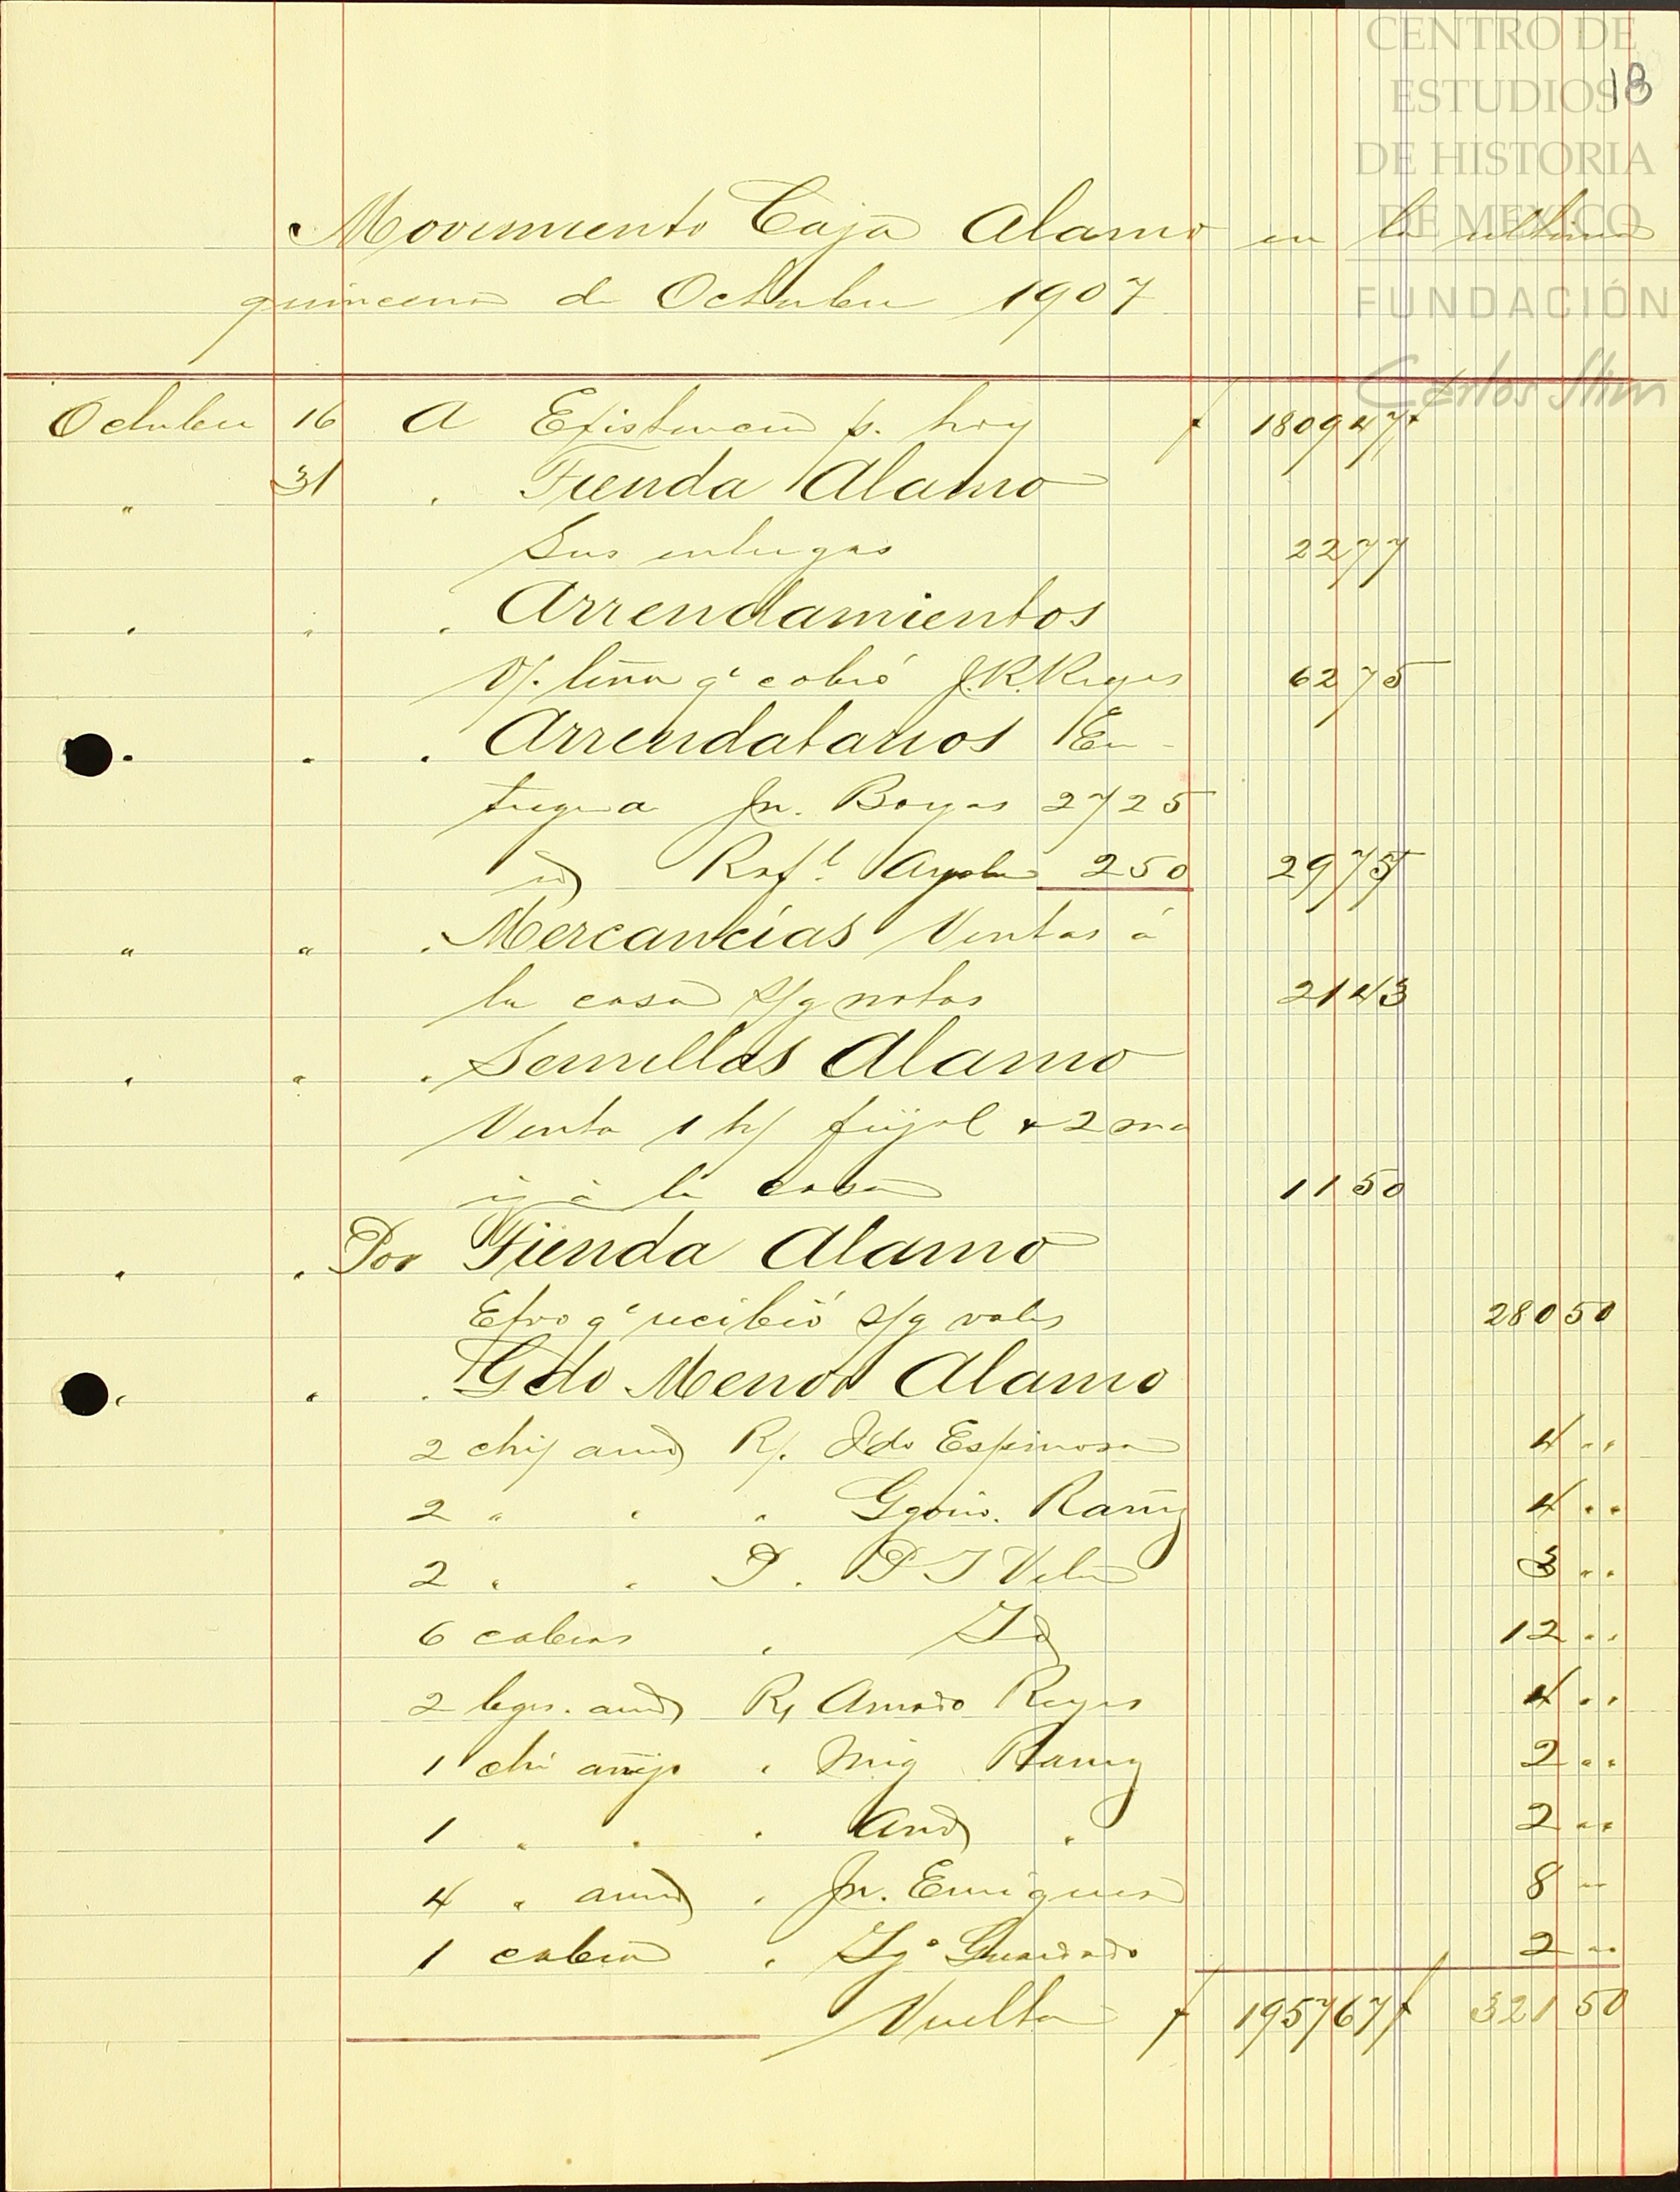 CENTRO DE
ESTUDIOS
DE HISTORIA
DE MEXICO
FUNDACIÓN
Carlos Slim
18
Movimiento Caja Alamo en la ultima
quincena de Octubre 1907
Octubre 16 A Existencia p. hoy $ 1809 47
" 31 " Tienda Alamo
Sus entregas 22 77
" " " Arrendamientos
V/. leña qe cobró J. R. Reyes 62 75
" " " Arrendatarios En-
trega a Jn. Borgas 27 25
id Rafl. Ayala 2 50 29 75
" " " Mercancías Ventas á
la casa s/g notas 21 43
" " " Semillas Alamo
Venta 1 h/ frijol & 2 ma
iz á la casa 11 50
" " Por Tienda Alamo
Efvo qe recibió s/g vales 280 50
" " " Gdo Menor Alamo
2 chi/ amd R/. Ido Espinosa 4 ..
2 " " " Ggorio. Ramz 4 ..
2 " " P. P I Vela 3 ..
6 cabras " Id 12 ..
2 bgs. amd R/ Amado Reyes 4 ..
1 chi añejo " Mig Ramz 2 ..
1 " " " And " 2 ..
4 " amd " Jn. Enriquez 8 ..
1 cabra " Igo Guardado 2 ..
Vuelta $ 1957 67 $ 321 50